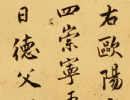 右歐陽
四崇寧
日德父